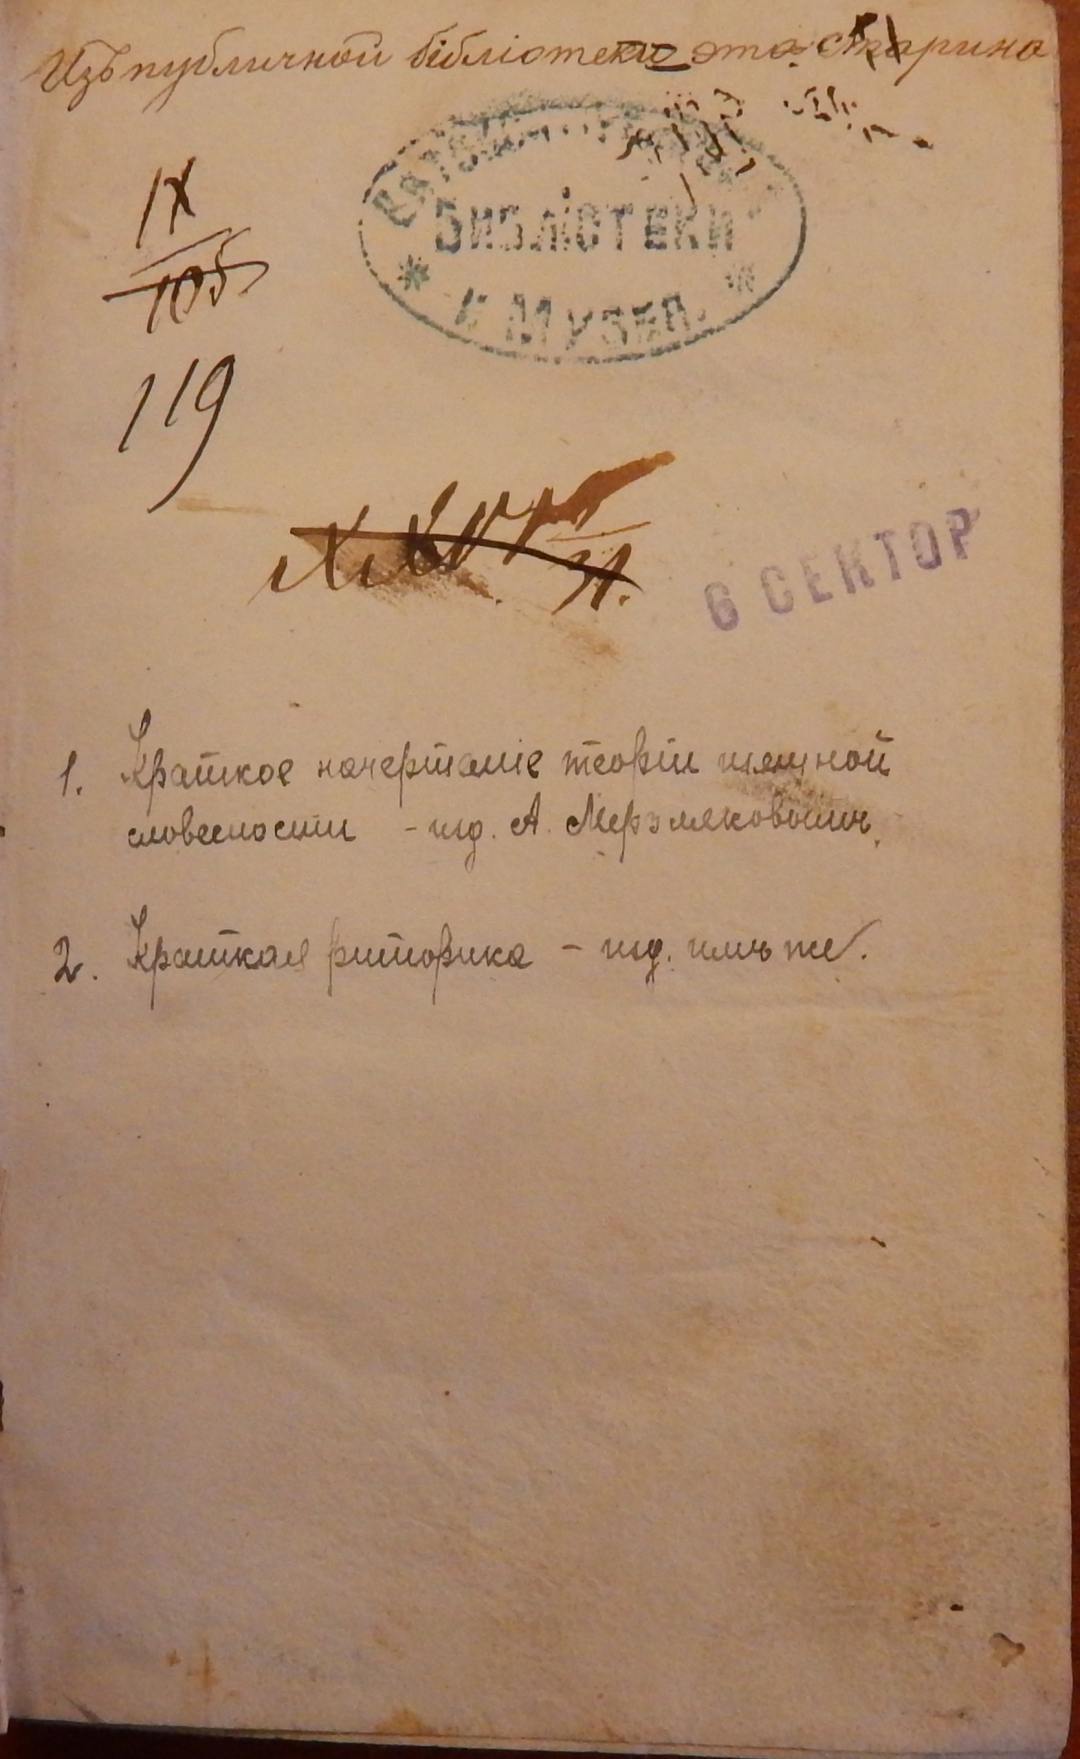 Изъ публичной бібліотеки это старина
БИБЛІОТЕКИ
И МУЗЕЯ.
IX
105
119
31.
6 СЕКТОР
1. Краткое начертаніе теоріи изящной
словесности - изд. А. Мерзляковымъ.
2. Краткая риторика - изд. имъ же.